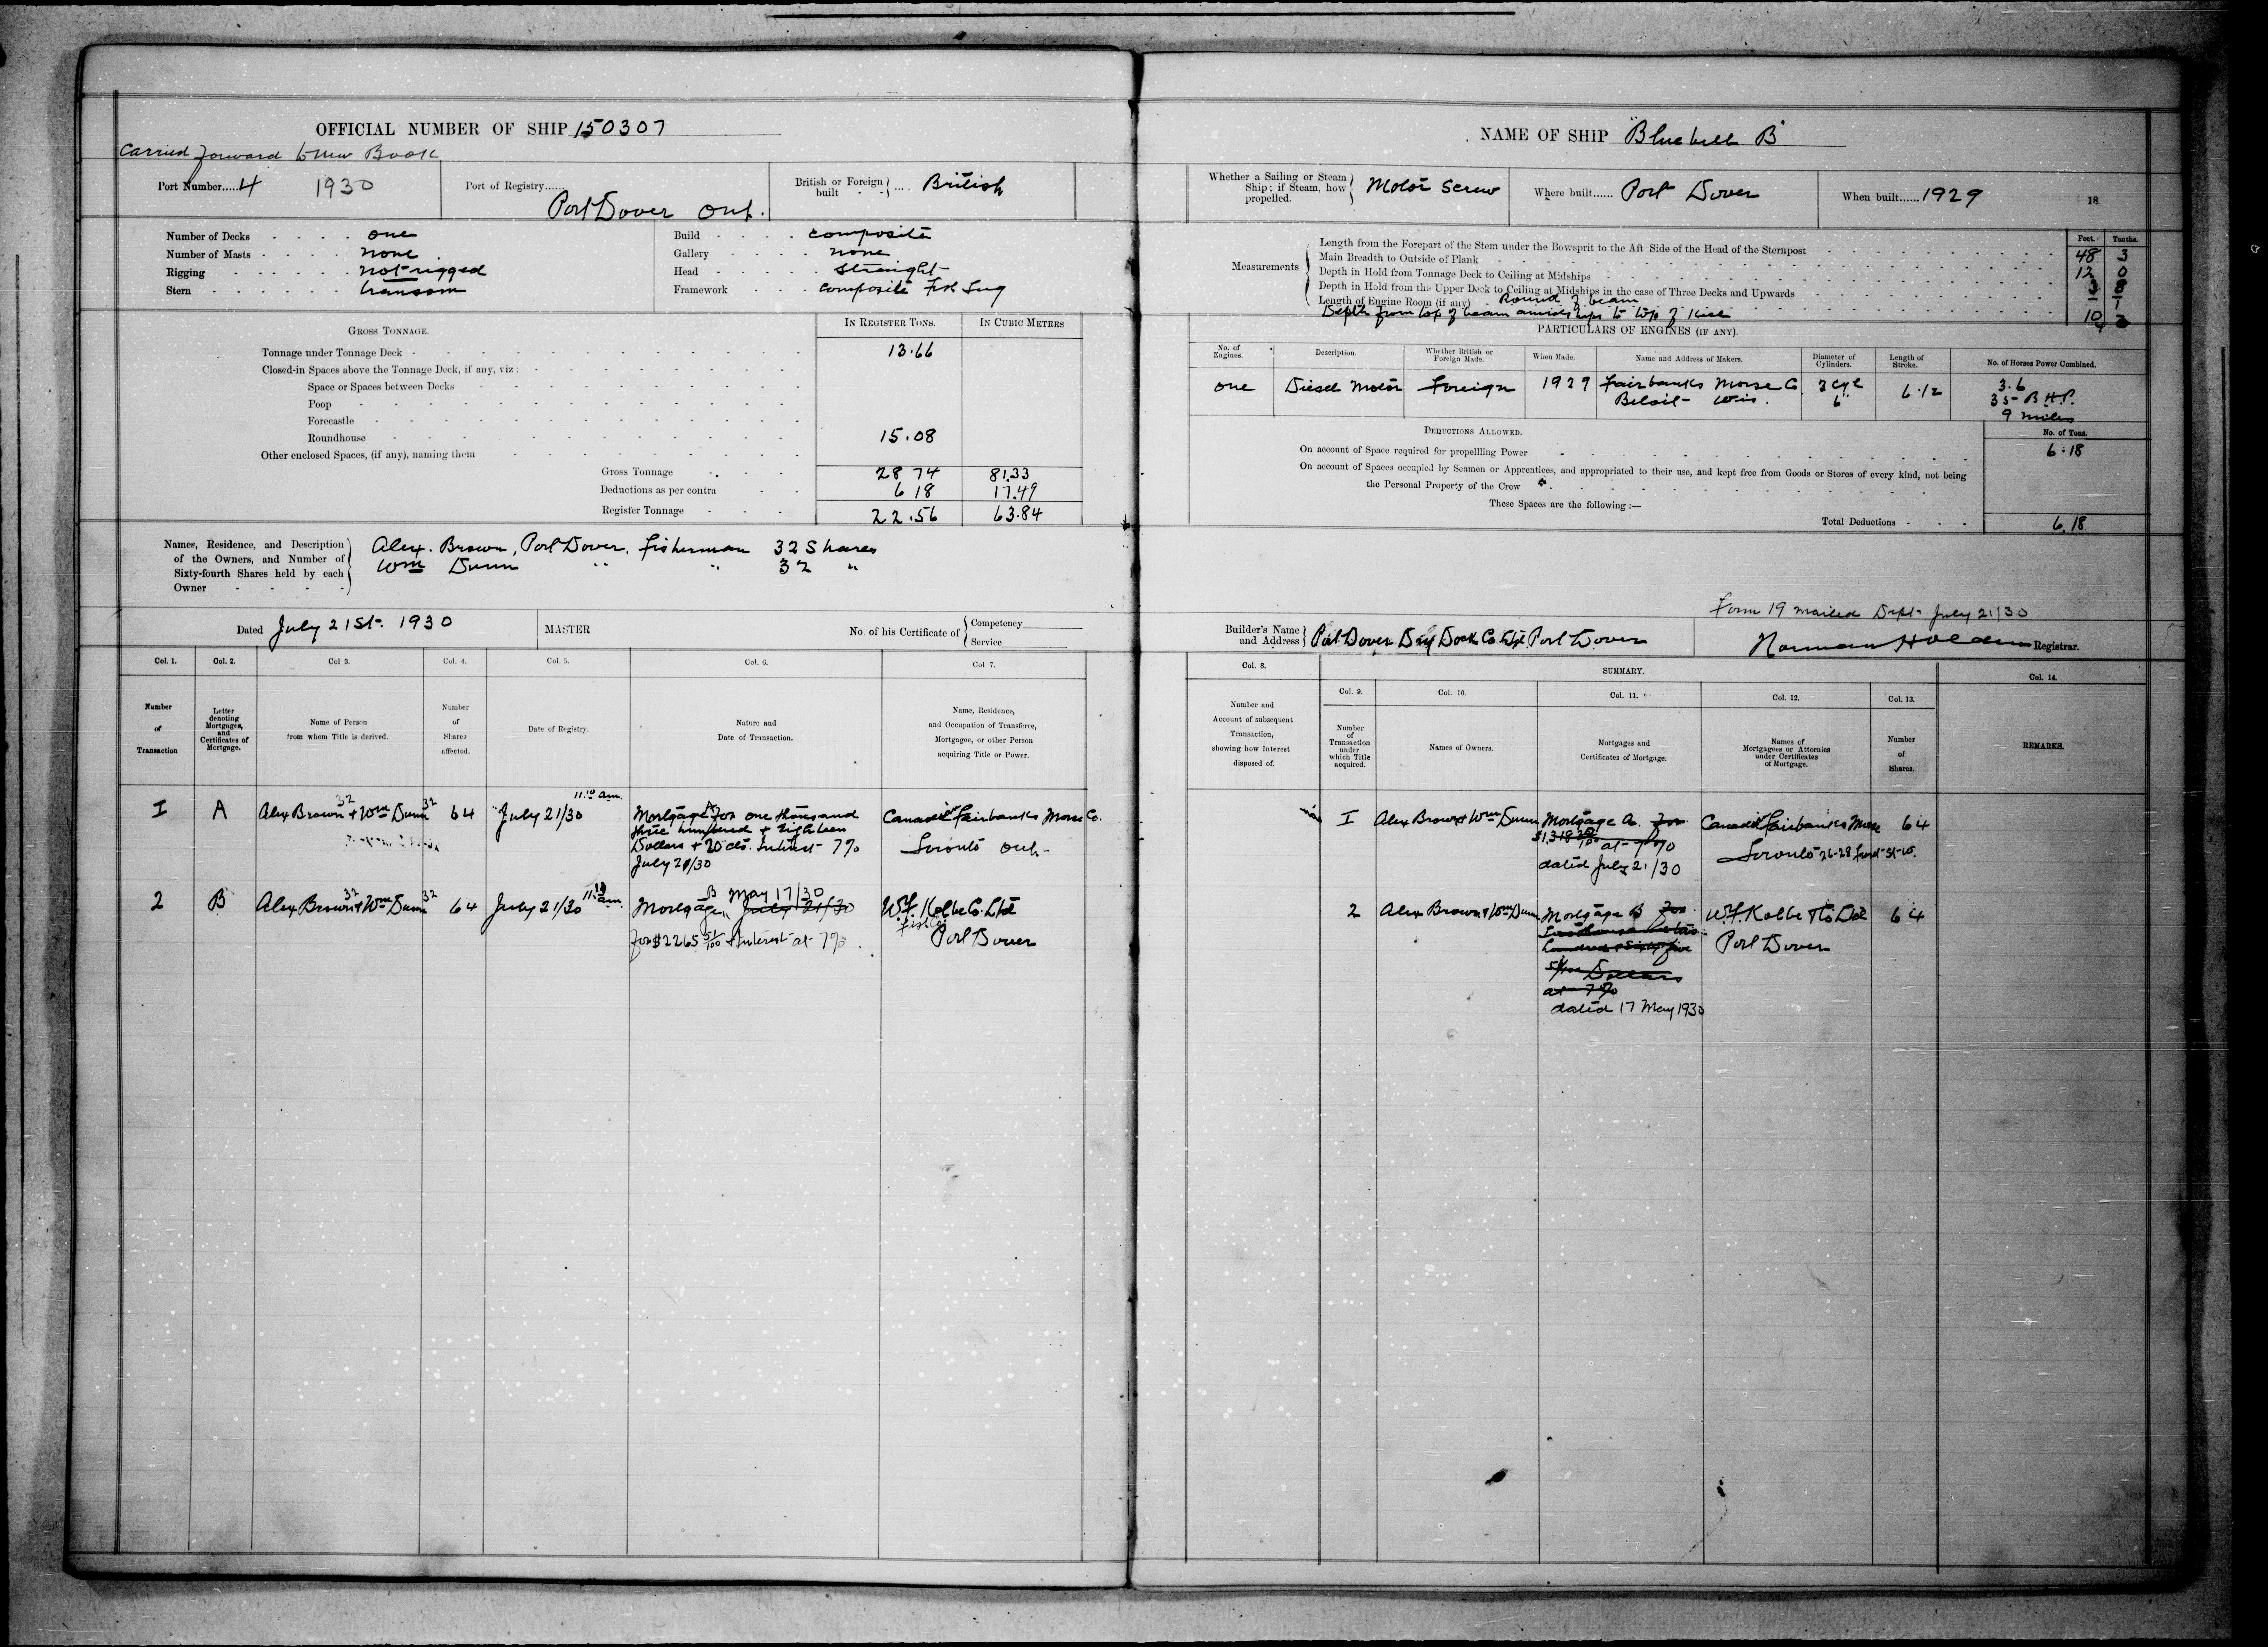 OFFICIAL NUMBER OF SHIP 150307
Carried forward to new Book
Port Number.....4 1930
Port of Registry...... Port Dover Ont.
British or Foreign built .... British
Number of Decks one
Number of Masts none
Rigging not rigged
Stern transom
Build composite
Gallery none
Head straight
Framework composite Fish Tug
GROSS TONNAGE.
IN REGISTER TONS. IN CUBIC METRES
Tonnage under Tonnage Deck 13.66
Closed-in Spaces above the Tonnage Deck, if any, viz:
Space or Spaces between Decks
Poop
Forecastle
Roundhouse 15.08
Other enclosed Spaces, (if any), naming them
Gross Tonnage 28 74 81.33
Deductions as per contra 6 18 17.49
Register Tonnage 22.56 63.84
Names, Residence, and Description of the Owners, and Number of Sixty-fourth Shares held by each Owner
Alex. Brown, Port Dover, Fisherman 32 Shares
Wm Dunn " " 32 "
Dated July 21st. 1930
MASTER
No. of his Certificate of Competency
Service
Col. 1. Col. 2. Col 3. Col. 4. Col. 5. Col. 6. Col. 7.
Number of Transaction
Letter denoting Mortgages, and Certificates of Mortgage.
Name of Person from whom Title is derived.
Number of Shares affected.
Date of Registry.
Nature and Date of Transaction.
Name, Residence, and Occupation of Transferee, Mortgagee, or other Person acquiring Title or Power.
I A Alex Brown 32 + Wm Dunn 32 64 July 21/30 11.10 am.
Mortgage A for one thousand
three hundred + Eighteen
Dollars + 20 cts. Interest 7%
July 21/30
Canadian Fairbanks Morse Co.
Toronto Ont
2 B Alex Brown 32 + Wm Dunn 32 64 July 21/30 am.
Mortgage B May 17/30 July 21/30
for $2265 51/100 + Interest at 7%.
W.F. Kolbe Co. Ltd
Port Dover
NAME OF SHIP "Bluebell B"
Whether a Sailing or Steam Ship; if Steam, how propelled. Motor Screw
Where built...... Port Dover
When built...... 1929 18
Measurements
Feet. Tenths.
Length from the Forepart of the Stem under the Bowsprit to the Aft Side of the Head of the Sternpost 48 3
Main Breadth to Outside of Plank 12 0
Depth in Hold from Tonnage Deck to Ceiling at Midships 3 8
Depth in Hold from the Upper Deck to Ceiling at Midships in the case of Three Decks and Upwards
Length of Engine Room (if any) Round of beam
Depth from top of beam amidships to top of Keel
PARTICULARS OF ENGINES (IF ANY).
No. of Engines. Description. Whether British or Foreign Made. When Made. Name and Address of Makers. Diameter of Cylinders. Length of Stroke. No. of Horses Power Combined.
one Diesel Motor Foreign 1929 Fairbanks Morse Co. 3 Cyl 6.12 3.6
Beloit Wis. 6" 35 B.H.P.
9 miles
DEDUCTIONS ALLOWED. No. of Tons.
On account of Space required for propelling Power 6.18
On account of Spaces occupied by Seamen or Apprentices, and appropriated to their use, and kept free from Goods or Stores of every kind, not being
the Personal Property of the Crew
These Spaces are the following:—
Total Deductions 6.18
Form 19 mailed Dept July 21/30
Builder's Name and Address Port Dover Dry Dock Co Ltd. Port Dover
Norman Holden Registrar.
Col. 8. SUMMARY. Col. 14.
Col. 9. Col. 10. Col. 11. Col. 12. Col. 13.
Number and Account of subsequent Transaction, showing how Interest disposed of.
Number of Transaction under which Title acquired.
Names of Owners.
Mortgages and Certificates of Mortgage.
Names of Mortgagees or Attornies under Certificates of Mortgage.
Number of Shares.
REMARKS.
I Alex Brown + Wm Dunn Mortgage A. for Canadian Fairbanks Morse 64
at 7%
dated July 21/30
Toronto 26-28 Front St. W.
2 Alex Brown + Wm Dunn Mortgage B for W.F. Kolbe + Co Ltd 64
hundred + sixty five
51/100 Dollars
at 7%
dated 17 May 1930
Port Dover